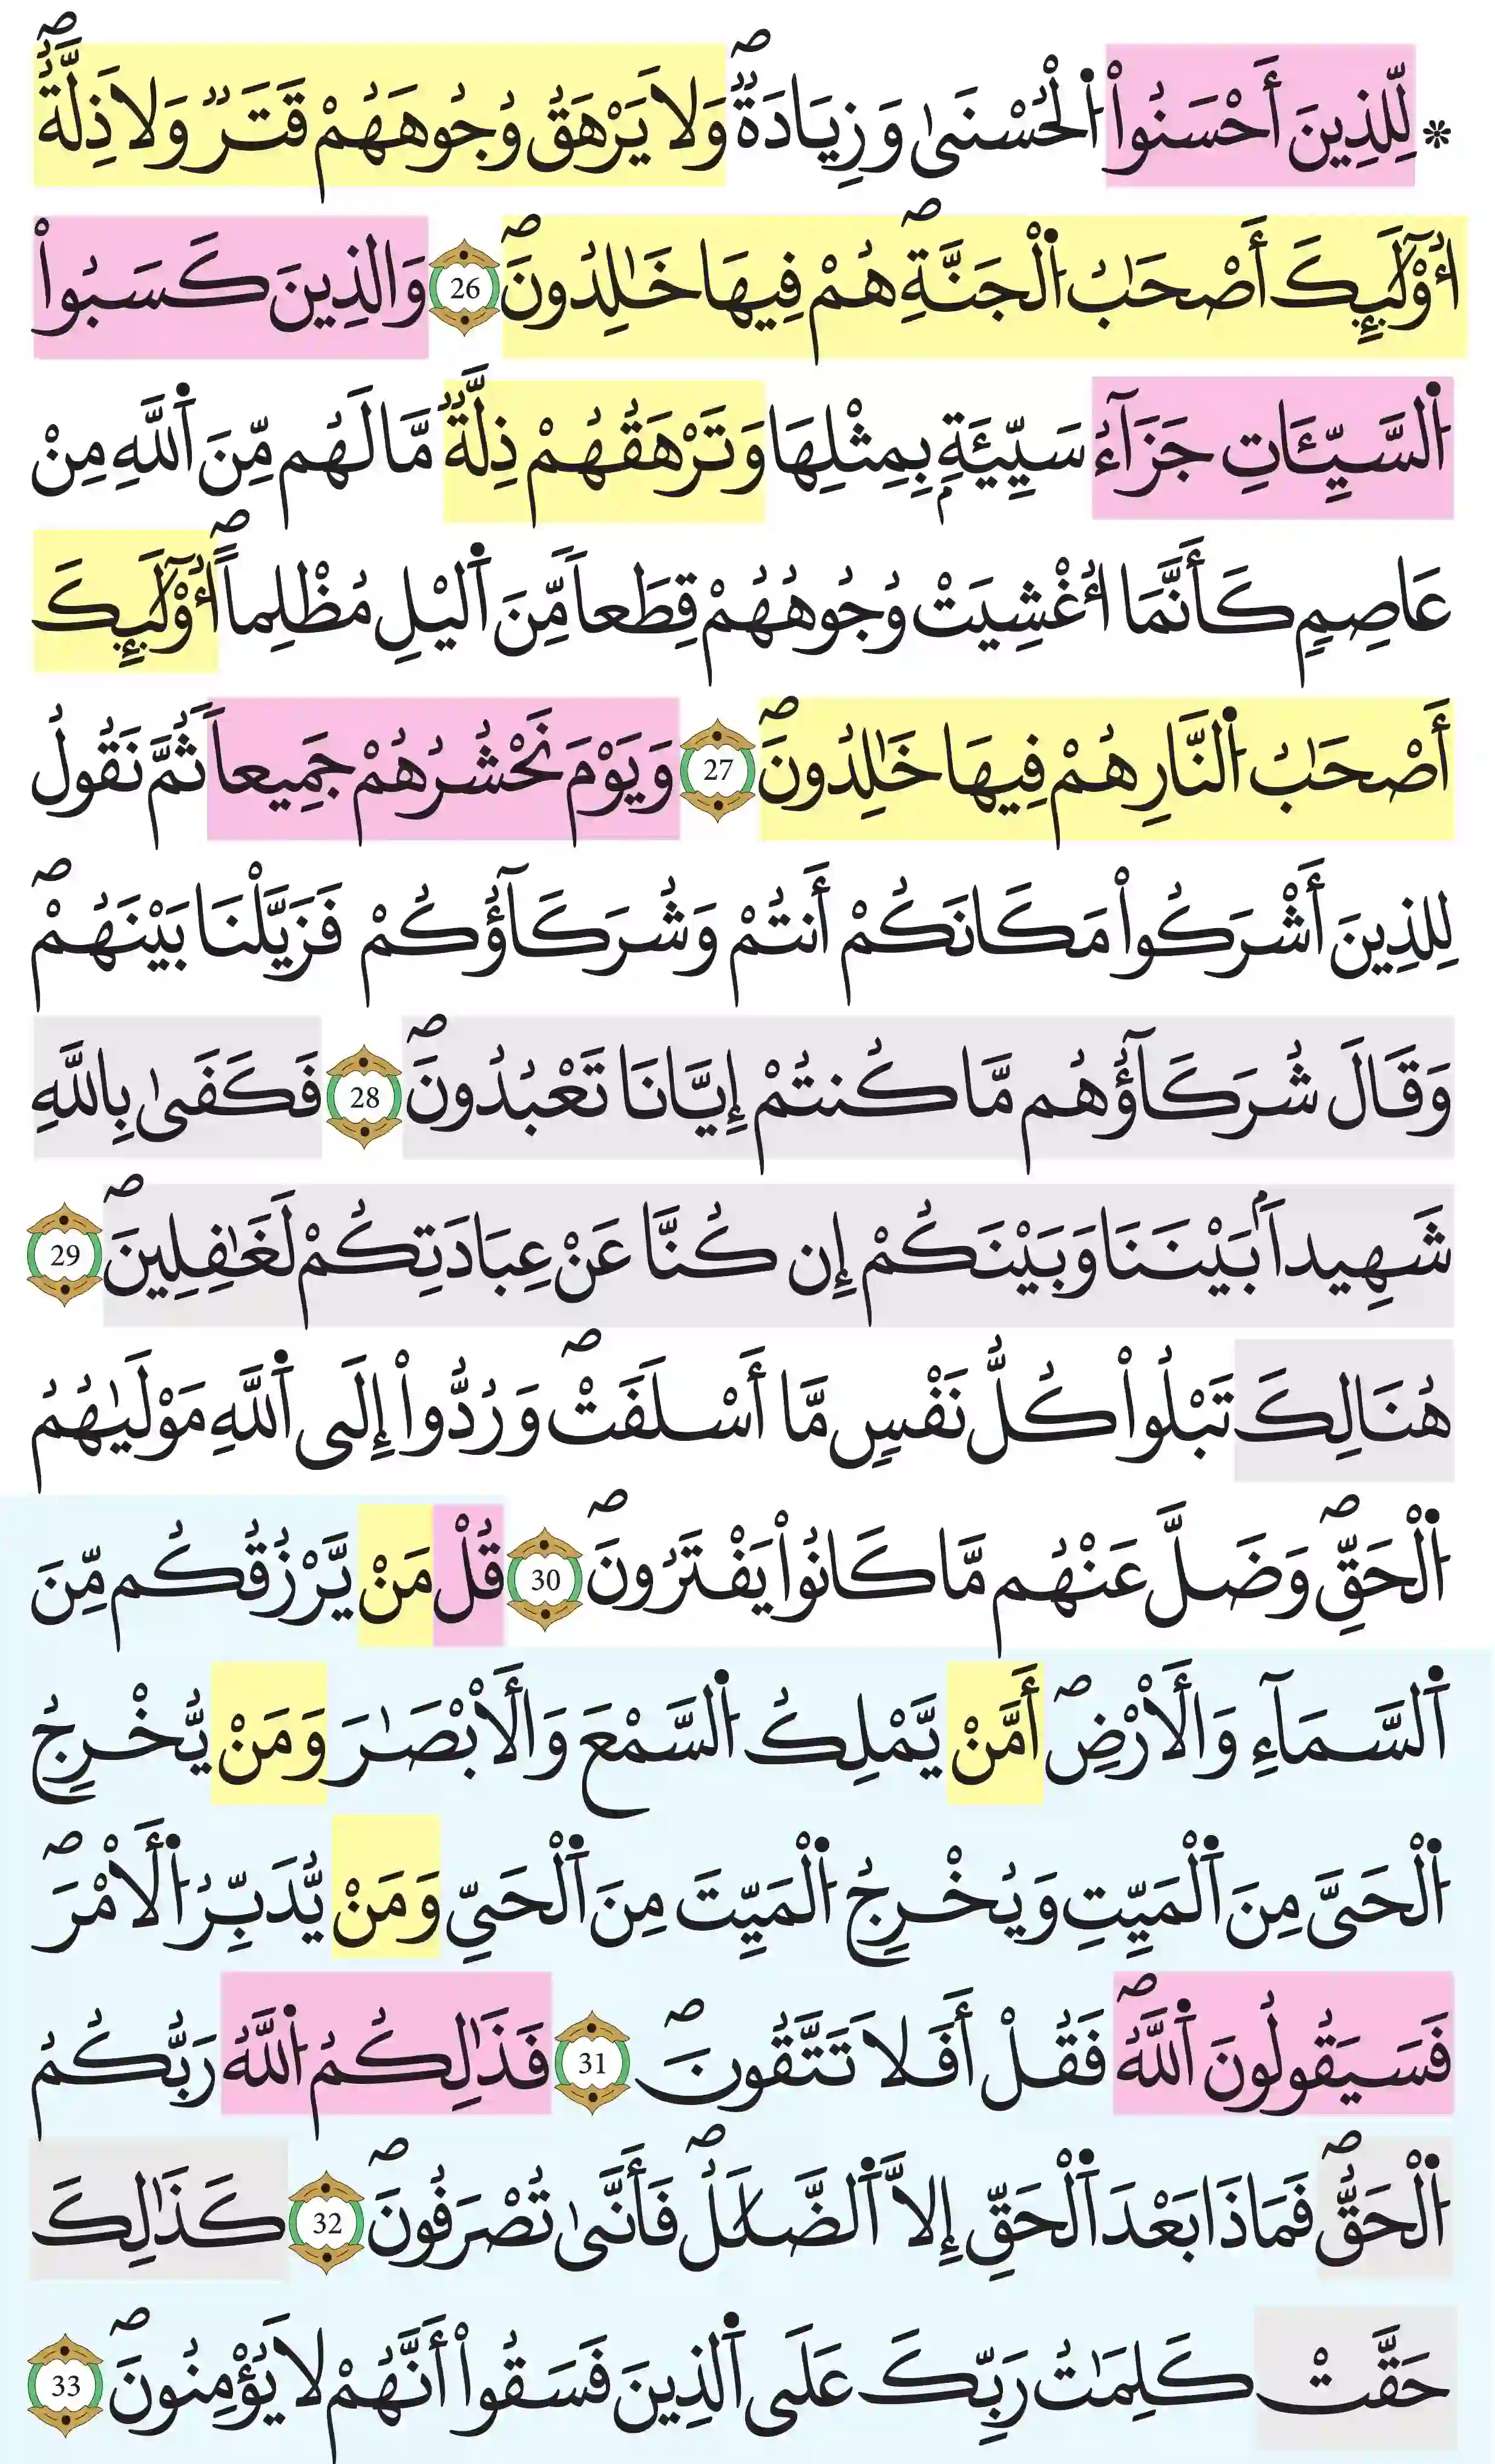 * لِّلذِينَ أَحْسَنُواْ اُ۬لْحُسْنَىٰ وَزِيَادَةٞۖ وَلَا يَرْهَقُ وُجُوهَهُمْ قَتَرٞ وَلَا ذِلَّةٌۖ
ا۟وْلَٰٓئِكَ أَصْحَٰبُ اُ۬لْجَنَّةِۖ هُمْ فِيهَا خَٰلِدُونَۖ 26 وَالذِينَ كَسَبُواْ
اُ۬لسَّيِّـَٔاتِ جَزَآءُ سَيِّئَةِۢ بِمِثْلِهَا وَتَرْهَقُهُمْ ذِلَّةٞۖ مَّا لَهُم مِّنَ اَ۬للَّهِ مِنْ
عَاصِمٖ كَأَنَّمَا أُغْشِيَتْ وُجُوهُهُمْ قِطَعاٗ مِّنَ اَ۬ليْلِ مُظْلِماًۖ ا۟وْلَٰٓئِكَ
أَصْحَٰبُ اُ۬لنَّارِ هُمْ فِيهَا خَٰلِدُونَۖ 27 وَيَوْمَ نَحْشُرُهُمْ جَمِيعاٗ ثُمَّ نَقُولُ
لِلذِينَ أَشْرَكُواْ مَكَانَكُمْ أَنتُمْ وَشُرَكَآؤُكُمْ فَزَيَّلْنَا بَيْنَهُمْۖ
وَقَالَ شُرَكَآؤُهُم مَّا كُنتُمْ إِيَّانَا تَعْبُدُونَۖ 28 فَكَفَىٰ بِاللَّهِ
شَهِيداَۢ بَيْنَنَا وَبَيْنَكُمْ إِن كُنَّا عَنْ عِبَادَتِكُمْ لَغَٰفِلِينَۖ 29
هُنَالِكَ تَبْلُواْ كُلُّ نَفْسٖ مَّا أَسْلَفَتْۖ وَرُدُّواْ إِلَى اَ۬للَّهِ مَوْلَىٰهُمُ
اُ۬لْحَقِّۖ وَضَلَّ عَنْهُم مَّا كَانُواْ يَفْتَرُونَۖ 30 قُلْ مَنْ يَّرْزُقُكُم مِّنَ
اَ۬لسَّمَآءِ وَالَارْضِۖ أَمَّنْ يَّمْلِكُ اُ۬لسَّمْعَ وَالَابْصَٰرَ وَمَنْ يُّخْرِجُ
اُ۬لْحَيَّ مِنَ اَ۬لْمَيِّتِ وَيُخْرِجُ اُ۬لْمَيِّتَ مِنَ اَ۬لْحَيِّ وَمَنْ يُّدَبِّرُ اُ۬لَامْرَۖ
فَسَيَقُولُونَ اَ۬للَّهُۖ فَقُلْ أَفَلَا تَتَّقُونَۖ 31 فَذَٰلِكُمُ اُ۬للَّهُ رَبُّكُمُ
اُ۬لْحَقُّۖ فَمَاذَا بَعْدَ اَ۬لْحَقِّ إِلَّا اَ۬لضَّلَٰلُۖ فَأَنَّىٰ تُصْرَفُونَۖ 32 كَذَٰلِكَ
حَقَّتْ كَلِمَٰتُ رَبِّكَ عَلَى اَ۬لذِينَ فَسَقُواْ أَنَّهُمْ لَا يُؤْمِنُونَۖ 33